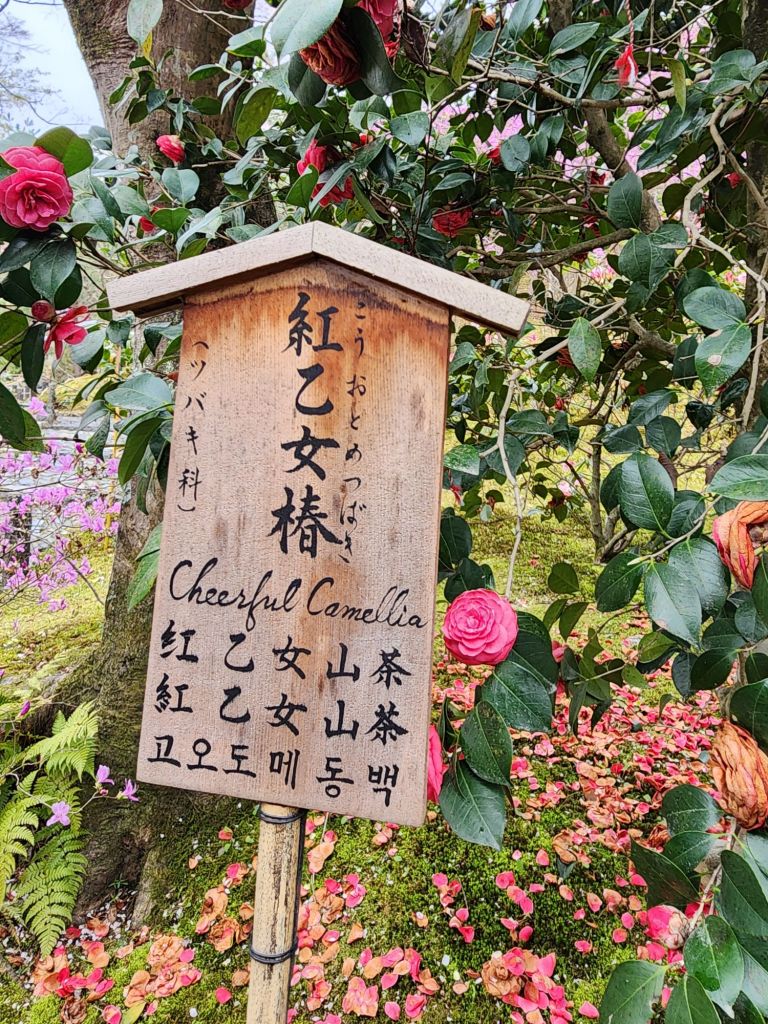 こうおとめつばき
紅乙女椿
（ツバキ科）
Cheerful Camellia
红乙女山茶
紅乙女山茶
고오도메동백